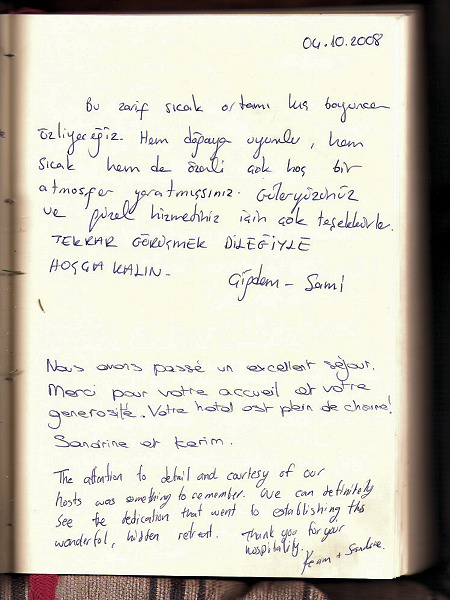 04.10.2008
Bu zarif sıcak ortamı kış boyunca
özliyeceğiz. Hem doğaya uyumlu, hem
sıcak hem de özenli çok hoş bir
atmosfer yaratmışsınız. Güleryüzünüz
ve güzel hizmetiniz için çok teşekkürler.
TEKRAR GÖRÜŞMEK DİLEĞİYLE
HOŞÇA KALIN.
Çiğdem - Sami
Nous avons passé un excellent séjour.
Merci pour votre accueil et votre
generosité. Votre hotel est plein de charme!
Sandrine et Karim.
The attention to detail and courtesy of our
hosts was something to remember. We can definitely
see the dedication that went to establishing this
wonderful, hidden retreat. Thank you for your
hospitality.
Karim + Sandrine.